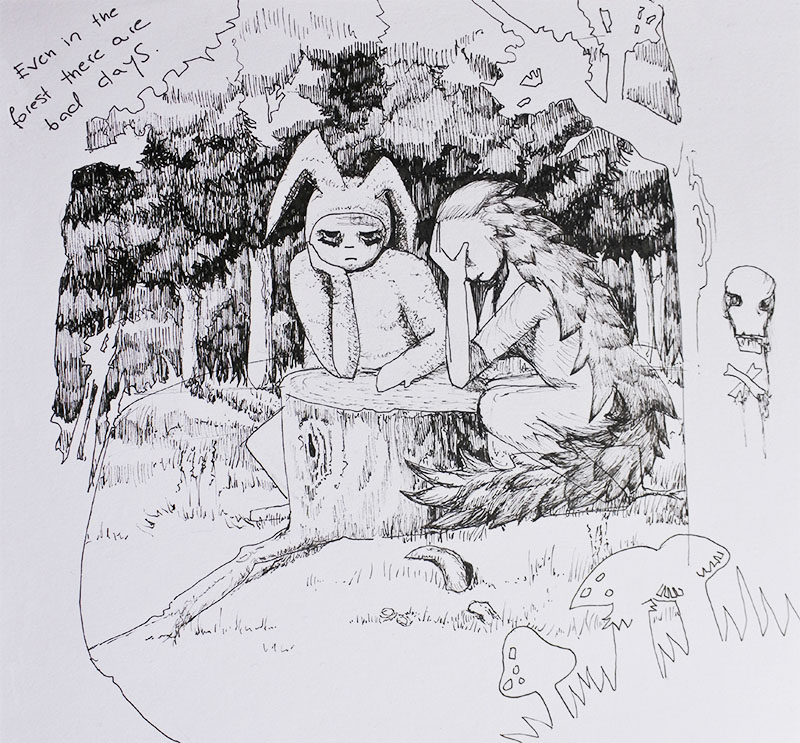 Even in the
forest there are
bad days.